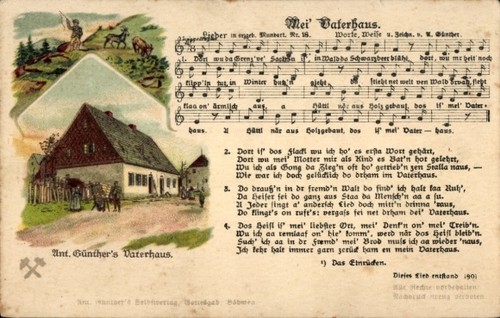 Mei' Vaterhaus.
Lieder in erzgeb. Mundart. Nr. 18. Worte, Weise u. Zeichn. v. A. Günther.
1. Dort wu da Grenz' vu' Sachsn is', in Wald da Schwarzbeer blüht, dort, wu mr heit noch
klipp'ln tut, in Winter huz'n gieht, do stieht net weit von Wald drwag, fiegt
klaa on' ärmlich aus, a Hüttl när aus Holzgebaut, dos is' mei' Vater-
haus. A Hüttl när aus Holzgebaut, dos is' mei' Vater-haus.
2. Dort is' dos Flackl wu ich ho' es ersta Wort gehärt,
Dort wu mei' Motter mir als Kind es Bat'n hot gelehrt,
Wu ich als Gong da Zieg'n oft ho' getrieb'n zen Stalla naus,
Wie war ich doch gelücklich do drham im Vaterhaus.
3. Do drauß'n in dr fremd'n Walt do find' ich halt kaa Ruh',
Da Heiser sei do ganz aus Staa da Mensch'n a a su.
A Jeder singt a' andersch Lied doch mitt'n drinna 'raus,
Do klingt's on ruft's: vergaß fei net drham dei' Vaterhaus.
4. Dos Heisl is' mei' liebster Ort, mei' Denk'n on' mei' Treib'n.
Wu ich aa remlaaf on' hie' komm', werd nàch dos Heisl bleib'n.
Such' ich aa in dr Fremd' mei' Brod muß ich aa wieder 'naus,
Ich kehr halt immer garn zerück ham en mein Vaterhaus.
¹) Das Einrücken.
Ant. Günther's Vaterhaus.
Dieses Lied entstand 1901
Ant. Günther's Selbstverlag, Gottesgab, Böhmen
Alle Rechte vorbehalten
Nachdruck streng verboten